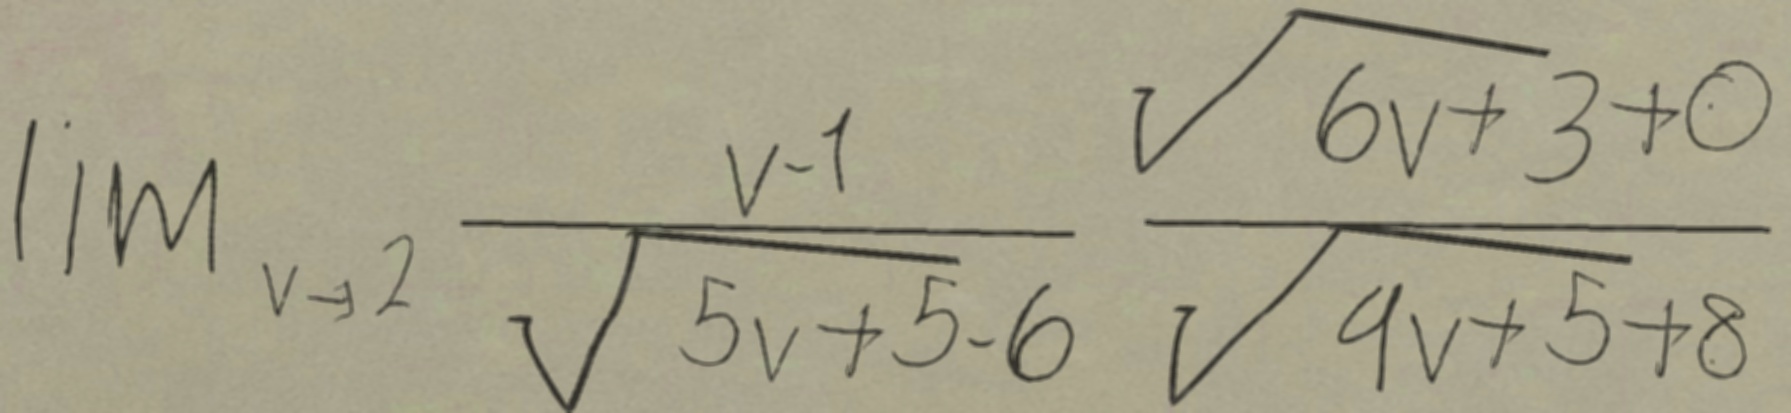 \lim_{v \to 2} \frac{v-1}{\sqrt{5v+5}-6} \frac{\sqrt{6v+3}+0}{\sqrt{9v+5}+8}